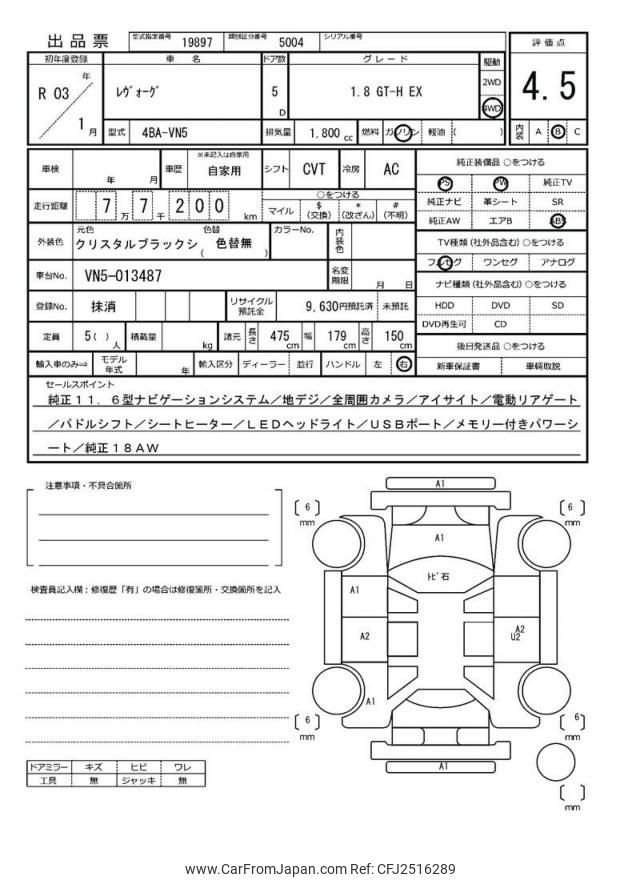 出品票 型式指定番号 19897 類別区分番号 5004 シリアル番号
初年度登録 車 名 ドア数 グレード 駆動 評価点
R 03 年 1 月 ﾚｳﾞｫｰｸﾞ 5 D 1.8 GT-H EX 2WD 4WD 4.5
型式 4BA-VN5 排気量 1.800 cc 燃料 ガソリン 軽油 ( ) 内装 A B C
車検 年 月 車歴 ※未記入は自家用 自家用 シフト CVT 冷房 AC
走行距離 7 万 7 千 2 0 0 km ○をつける
マイル $ (交換) * (改ざん) # (不明)
外装色 元色 クリスタルブラックシ 色替 ( 色替無 ) カラーNo. 内装色
車台No. VN5-013487 名変期限 月 日
登録No. 抹消 リサイクル預託金 9,630円預託済 未預託
定員 5 ( ) 人 積載量 kg 諸元 長さ 475 cm 幅 179 cm 高さ 150 cm
輸入車のみ⇒ モデル年式 年 輸入区分 ディーラー 並行 ハンドル 左 右
純正装備品 ○をつける
PS PW 純正TV
純正ナビ 革シート SR
純正AW エアB ABS
TV種類 (社外品含む) ○をつける
フルセグ ワンセグ アナログ
ナビ種類 (社外品含む) ○をつける
HDD DVD SD
DVD再生可 CD
後日発送品 ○をつける
新車保証書 車輌取説
セールスポイント
純正11．6型ナビゲーションシステム／地デジ／全周囲カメラ／アイサイト／電動リアゲート
／パドルシフト／シートヒーター／LEDヘッドライト／USBポート／メモリー付きパワーシ
ート／純正18AW
注意事項・不具合箇所
検査員記入欄：修復歴「有」の場合は修復箇所・交換箇所を記入
ドアミラー キズ ヒビ ワレ
工具 無 ジャッキ 無
A1
6 mm
6 mm
A1
ﾄﾋﾞ石
A1
A2
A2
U2
A1
6 mm
6 mm
A1
mm
www.CarFromJapan.com Ref: CFJ2516289